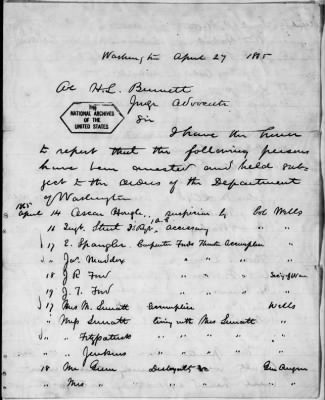 Washington April 27 1865
Col H.L. Burnett
Judge Advocate
Sir
THE
NATIONAL ARCHIVES
OF THE
UNITED STATES
I have the honor
to report that the following persons
have been arrested and held sub-
ject to the orders of the Department
of Washington
1865
April 14 suspicion by Col Wells
16 accessory
17 E. Spangler Carpenter Fords Theatre Accomplice "
" Jas. Maddox " " "
18 J R Ford " "
19 J. T. Ford " " "
17 Mrs M. Surratt accomplice Wells
" Miss Surratt living with Mrs Surratt "
" " Fitzpatrick " " " "
" " Jenkins " " " "
18 Mr Green Gen Augur
" Mrs " " "